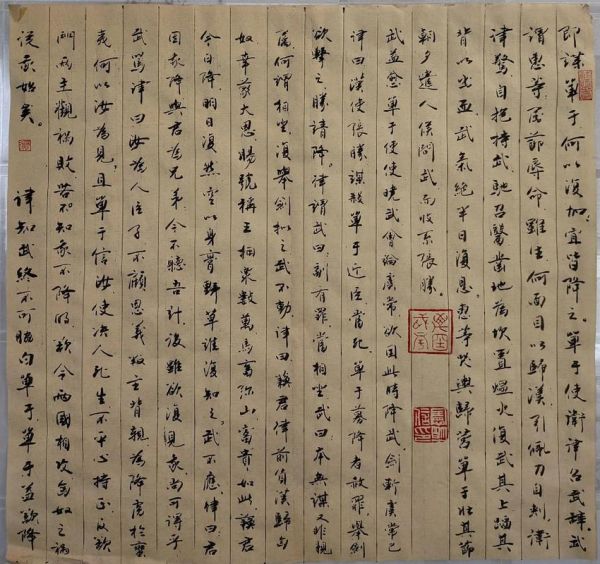 即謀單于何以復加宜皆降之。單于使衛律召武辭武
謂惠等屈節辱命雖生何面目以歸漢引佩刀自刺衛
律驚自抱持武馳召醫鑿地為坎置煴火復武其上蹈其
背以出血武氣絕半日復息惠等哭輿歸營單于壯其節
朝夕遣人候問武而收系張勝。
武益愈單于使使曉武會論虞常欲因此時降武劍斬虞常已
律曰漢使張勝謀殺單于近臣當死單于募降者赦罪舉劍
欲擊之勝請降。律謂武曰副有罪當相坐武曰本無謀又非親
屬何謂相坐復舉劍擬之武不動律曰蘇君律前負漢歸匈
奴幸蒙大恩賜號稱王擁眾數萬馬畜彌山富貴如此蘇君
今日降明日復然空以身膏野草誰復知之武不應律曰君
因我降與君為兄弟今不聽吾計後雖欲復見我尚可得乎
武罵律曰汝為人臣子不顧恩義叛主背親為降虜於蠻
夷何以汝為見且單于信汝使決人死生不平心持正反欲
鬥兩主觀禍敗若知我不降明欲令兩國相攻匈奴之禍
從我始矣。律知武終不可脅白單于單于益欲降